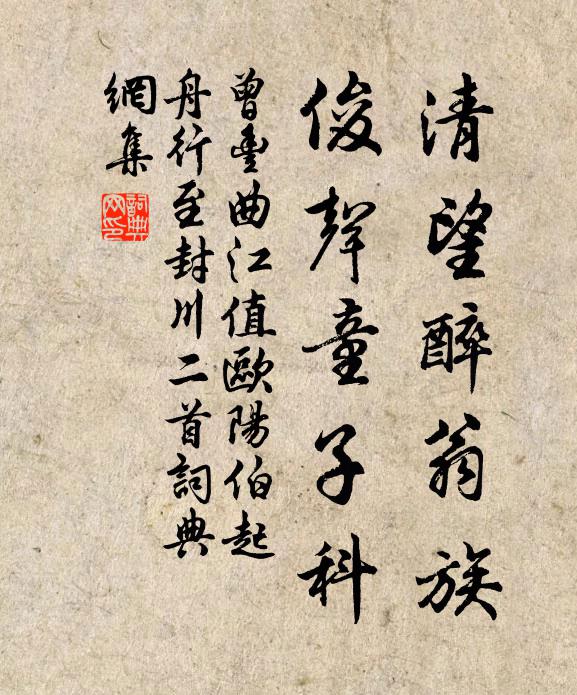 清望醉翁族
俊聲童子科
曾豐曲江值歐陽伯起
舟行至封川二首詞典
網集
詞典
网印